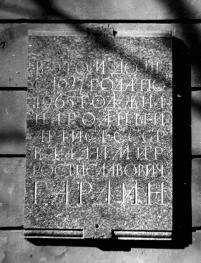 В ЭТОМ ДОМЕ
С 1927 ГОДА ПО
1965 ГОД ЖИЛ
НАРОДНЫЙ
АРТИСТ СССР
ВЛАДИМИР
РОСТИСЛАВОВИЧ
ГАРДИН